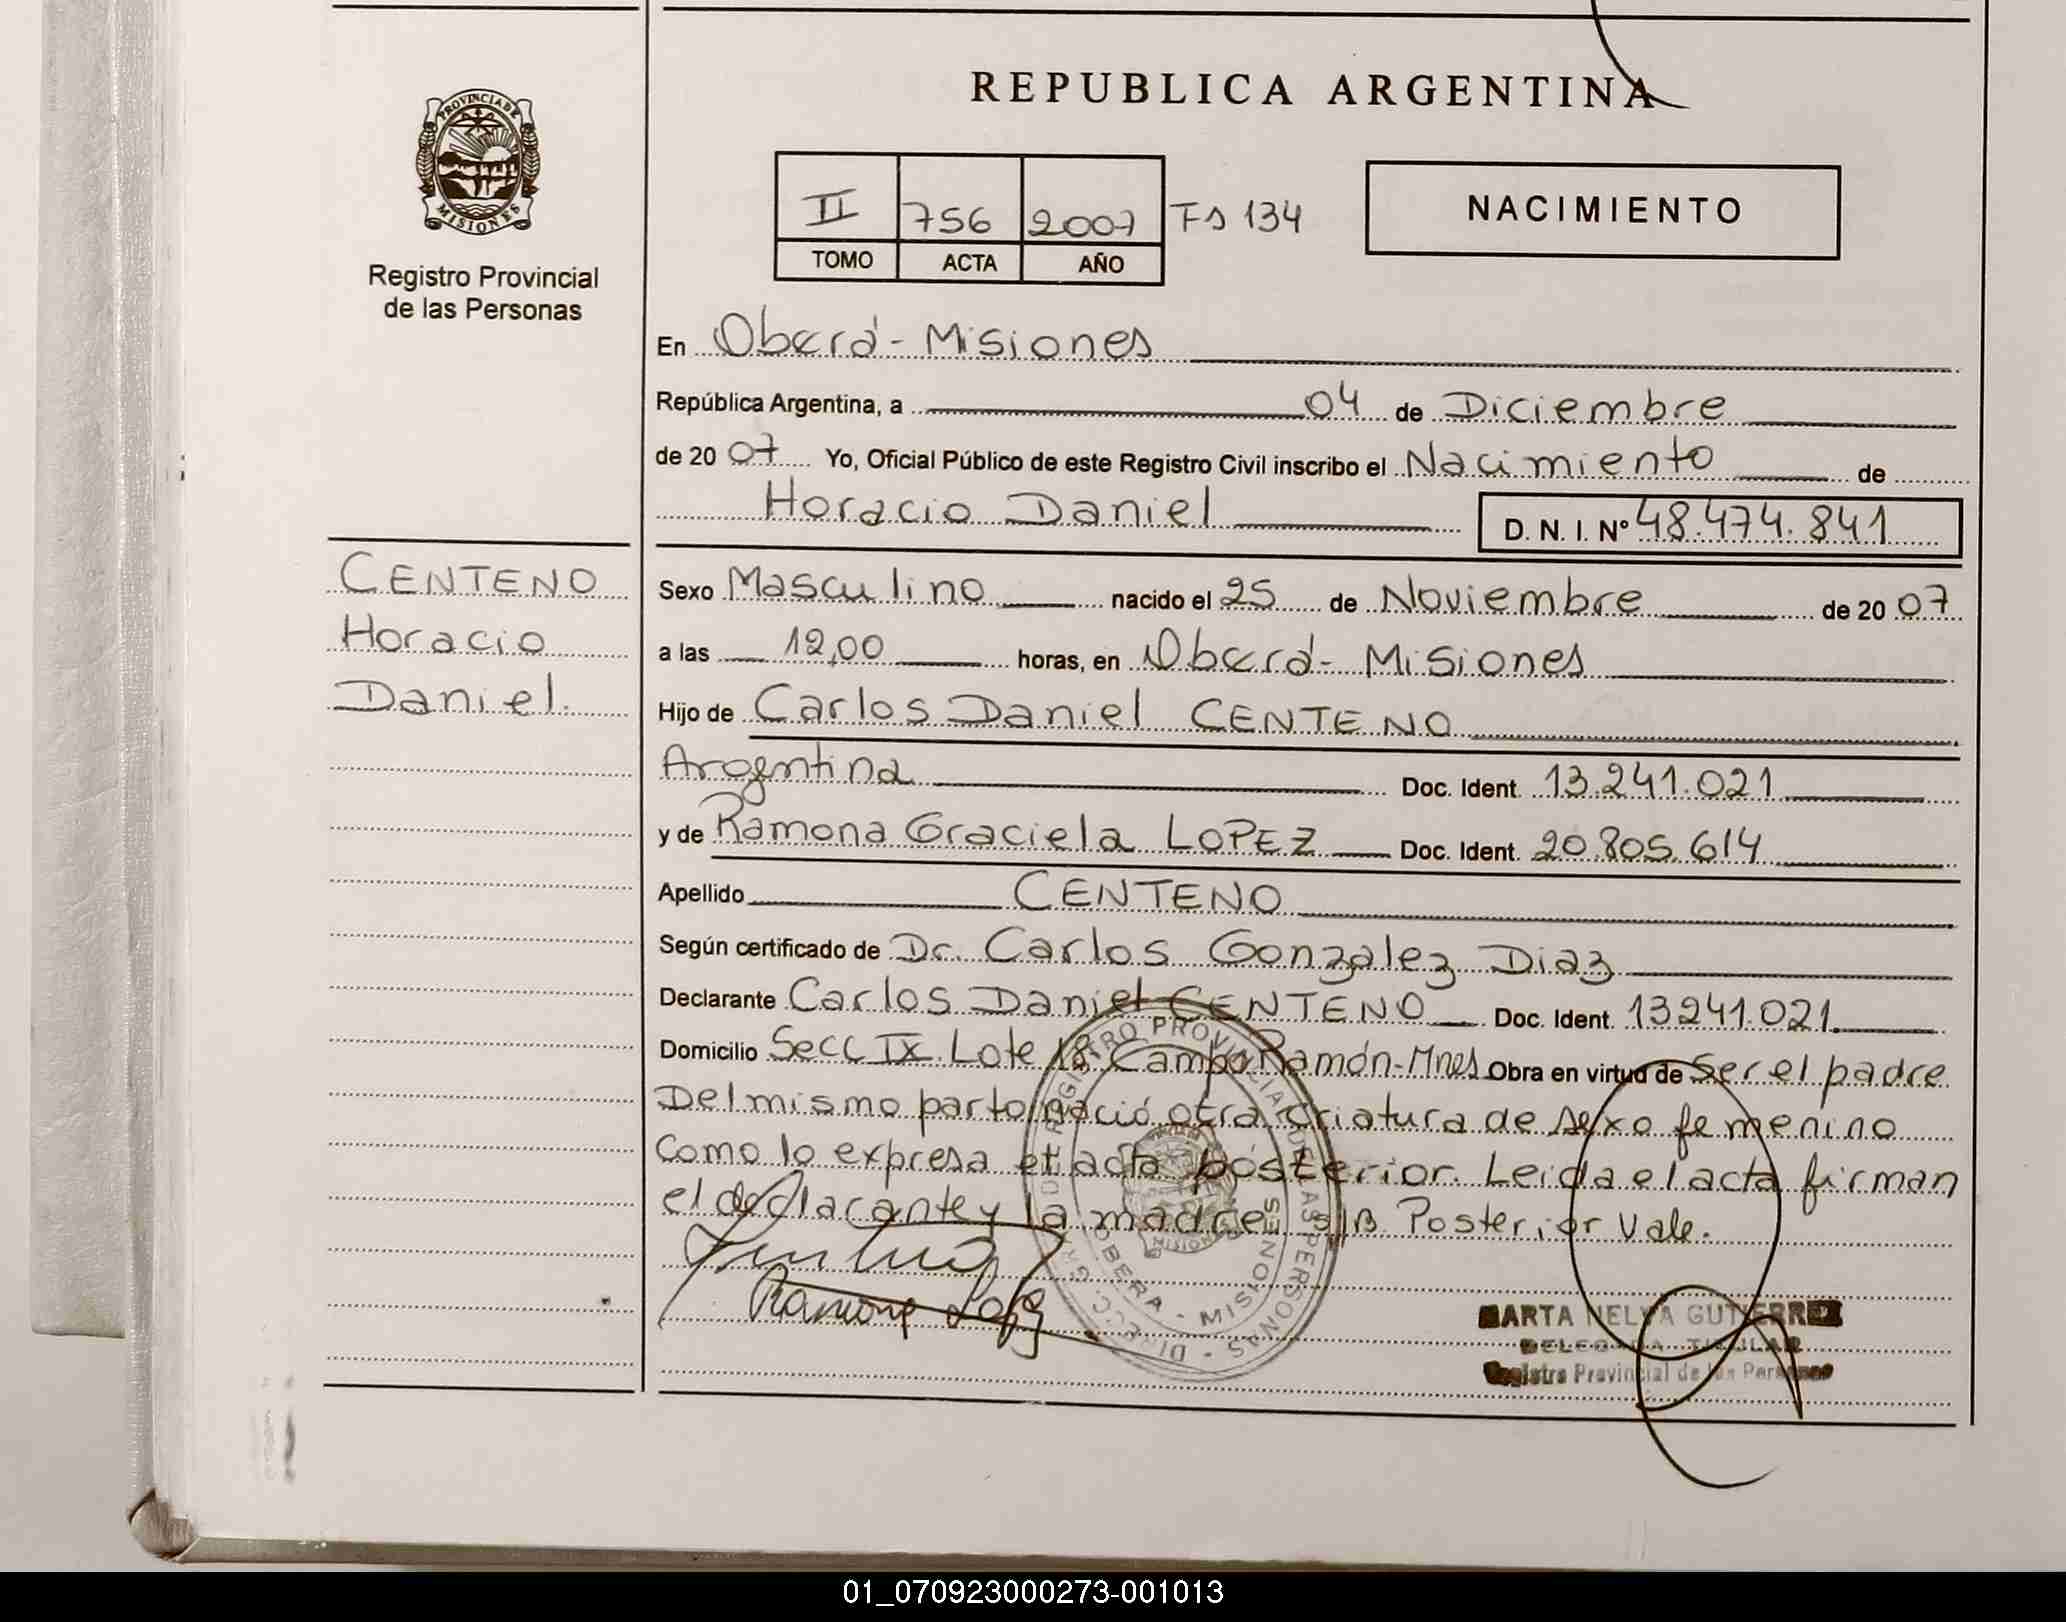 REPUBLICA ARGENTINA
PROVINCIA DE
MISIONES
Registro Provincial
de las Personas
II 756 2007 Fs 134
TOMO ACTA AÑO
NACIMIENTO
En Oberá - Misiones
República Argentina, a 04 de Diciembre
de 20 07 Yo, Oficial Público de este Registro Civil inscribo el Nacimiento de
Horacio Daniel D. N. I. Nº 48.474.841
CENTENO
Horacio
Daniel.
Sexo Masculino nacido el 25 de Noviembre de 20 07
a las 12,00 horas, en Oberá - Misiones
Hijo de Carlos Daniel CENTENO
Argentina Doc. Ident. 13.241.021
y de Ramona Graciela LOPEZ Doc. Ident. 20.805.614
Apellido CENTENO
Según certificado de Dr. Carlos Gonzalez Diaz
Declarante Carlos Daniel CENTENO Doc. Ident. 13241.021.
Domicilio Secc IX Lote 18 Campo Ramón-Mnes Obra en virtud de Ser el padre
Del mismo parto nació otra criatura de sexo femenino
Como lo expresa el acta posterior. Leida el acta firman
el declarante y la madre. s/B Posterior Vale.
Ramona Lopez
REGISTRO PROVINCIAL DE LAS PERSONAS
OBERA - MISIONES
MARTA NELVA GUTIERREZ
DELEGADA TITULAR
Registro Provincial de las Personas
01_070923000273-001013